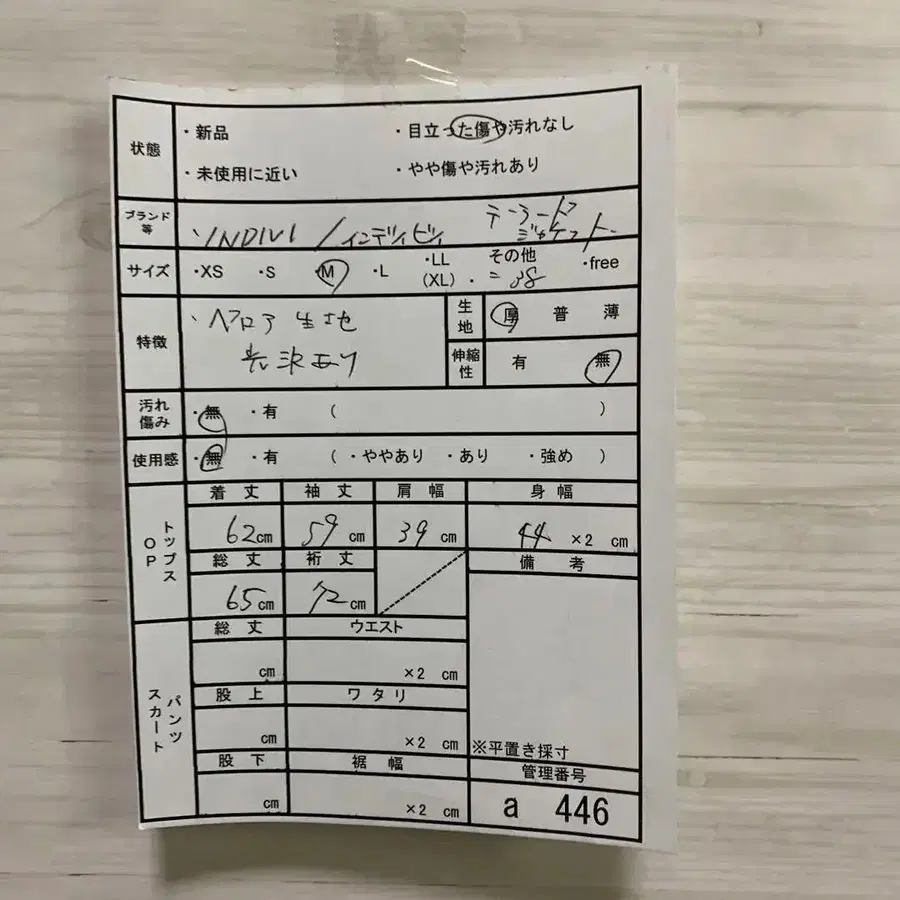 状態 ・新品 ・目立った傷や汚れなし
・未使用に近い ・やや傷や汚れあり
ブランド等 ・INDIVI / インディビィ テーラードジャケット
サイズ ・XS ・S ・M ・L ・LL (XL) ・その他 = 38 ・free
特徴 ・ベロア生地
光沢あり
生地 厚 普 薄
伸縮性 有 無
汚れ傷み ・無 ・有 ( )
使用感 ・無 ・有 ( ・ややあり ・あり ・強め )
トップス OP
着丈 袖丈 肩幅 身幅
62cm 59cm 39cm 44 ×2 cm
総丈 裄丈 備考
65cm 72cm
パンツ スカート
総丈 ウエスト
cm ×2 cm
股上 ワタリ
cm ×2 cm
※平置き採寸
股下 裾幅 管理番号
cm ×2 cm a 446